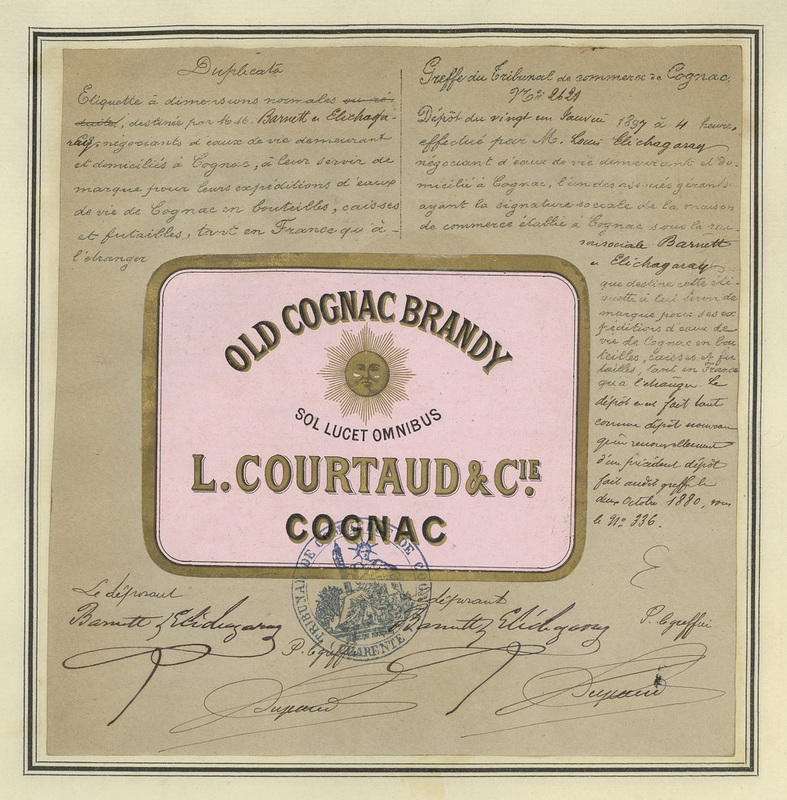 Duplicata
Etiquette à dimensions normales ou ré-
duites, destinée par M.M. Barnett et Elichaga-
ray, négociants d'eaux de vie demeurant
et domiciliés à Cognac, à leur servir de
marque pour leurs expéditions d'eaux
de vie de Cognac en bouteilles, caisses
et futailles, tant en France qu'à
l'étranger
Greffe du Tribunal de commerce de Cognac.
N° 2621
Dépôt du vingt un Janvier 1897 à 4 heures,
effectué par M. Louis Elichagaray
négociant d'eaux de vie demeurant et do-
micilié à Cognac, l'un des associés gérants
ayant la signature sociale de la maison
de commerce établie à Cognac sous la rai-
son sociale Barnett
et Elichagaray
que destine cette éti-
quette à lui servir de
marque pour ses ex
péditions d'eaux de
vie de Cognac en bou
teilles, caisses et fu
tailles, tant en France
qu'à l'étranger. Le
dépôt en est fait tant
comme dépôt nouveau
qu'en renouvellement
d'un précédent dépôt
fait audit greffe le
deux Octobre 1880, sous
le N° 336.
OLD COGNAC BRANDY
SOL LUCET OMNIBUS
L. COURTAUD & CIE.
COGNAC
TRIBUNAL DE COMMERCE DE COGNAC
(CHARENTE)
Le déposant
Barnett & Elichagaray
déposant
Barnett & Elichagaray
P. le greffier
P. le greffier